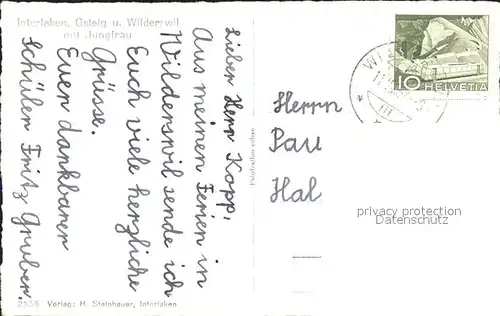 Interlaken, Gsteig u. Wilderswil
mit Jungfrau
Lieber Herr Kopp,
Aus meinen Ferien in
Wilderswil sende ich
Euch viele herzliche
Grüsse.
Euer dankbarer
Schüler Fritz Gruber.
2958 Verlag: H. Steinhauer, Interlaken
10 HELVETIA
Herrn
Pau
Hal
privacy protection
Datenschutz